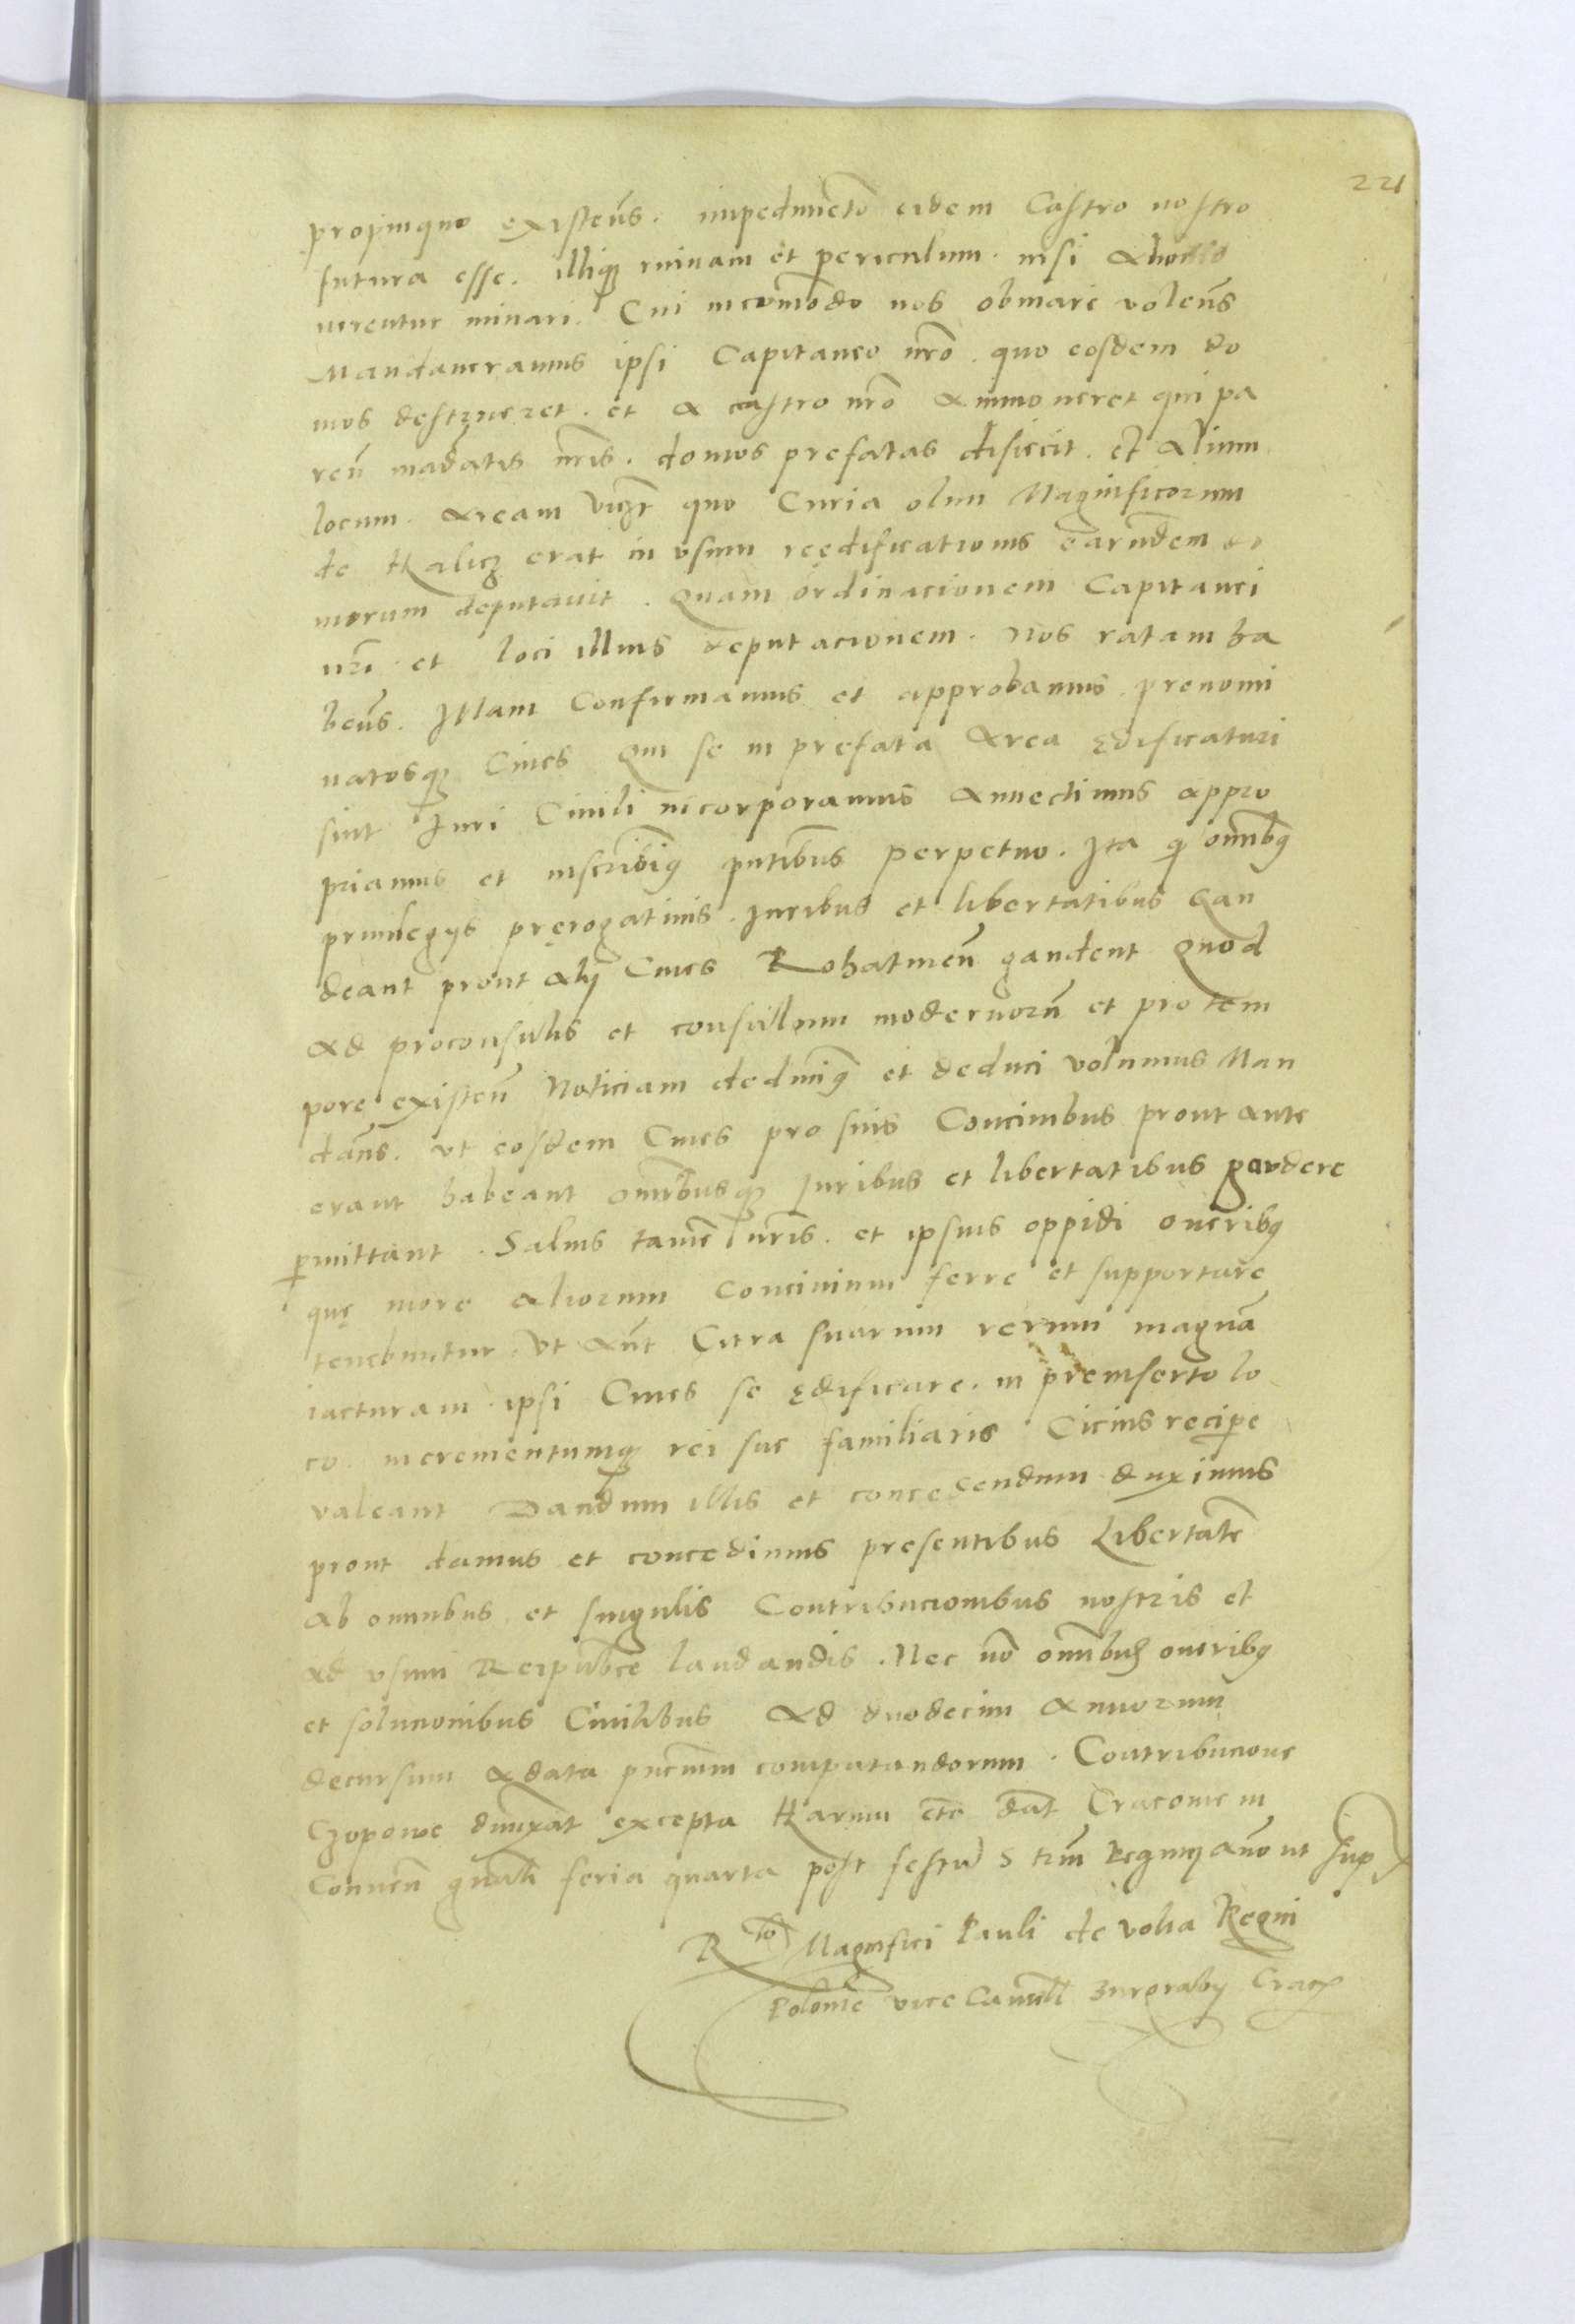 221
propinquo existeñs. impedimẽto eidem Castro nostro
futura esse. illiq3 ruinam et periculum. nisi
uerentur minari. Cui incõmodo nos obuiare voleñs
Mandaueramus ipsi Capitaneo nr̃o. quo eosdem do
mos destrueret. et a castro nr̃o ammoueret qui pa
reñ mãdatis nr̃is. domos prefatas disiecit. et Alium
locum. Aream vicz quo Curia olim Magnificorum
de Halicz erat in vsum reędificationis earundem do
morum deputauit. Quam ordinacionem Capitanei
nr̃i. et loci illius deputacionem. Nos ratam ha
beñs. Illam Confirmamus et approbamus. prenomi
natosq3 Ciues Qui se in prefata Area ędificaturi
sint Iuri Ciuili incorporamus Annectimus appro
priamus et inscribim9 pñtibus perpetuo. Ita q omnib9
priuilegijs pręrogatiuis. Iuribus et libertatibus Gau
deant prout alij Ciues Rohatineñ gaudent Quod
Ad proconsulis et consulum modernorũ et pro tem
pore existeñ Noticiam deducim9 et deduci volumus Man
dañs. vt eosdem Ciues pro suis Conciuibus prout ante
erant habeant omnibusq3 Iuribus et libertatibus gaudere
p̱mittant. Saluis tamẽ nr̃is. et ipsius oppidi onerib9
quę more aliorum Conciuium ferre et supportare
tenebuntur. Vt aũt Citra suarum rerum magnã
iacturam. ipsi Ciues se ędificare. in preinserto lo
co. incrementumq3 rei sue familiaris Cicius recipe
valeant Dandum illis et concedendum duximus
prout damus et concedimus presentibus Libertatẽ
Ab omnibus et singulis Contribucionibus nostris et
ad vsum Reipubce laudandis. Nec nõ omnibus onerib9
et solucionibus Ciuilibus Ad duodecim Annorum
decursum a data pñcium computandorum. Contribucione
Czopowe dumxat excepta Harum etc dat Cracouie in
Conuen gñali feria quarta post festũ S trium Regum Anno ut sup
R to Magnifici Pauli de Volia Regni
Polonie vice Cancell Zuporabij Crac